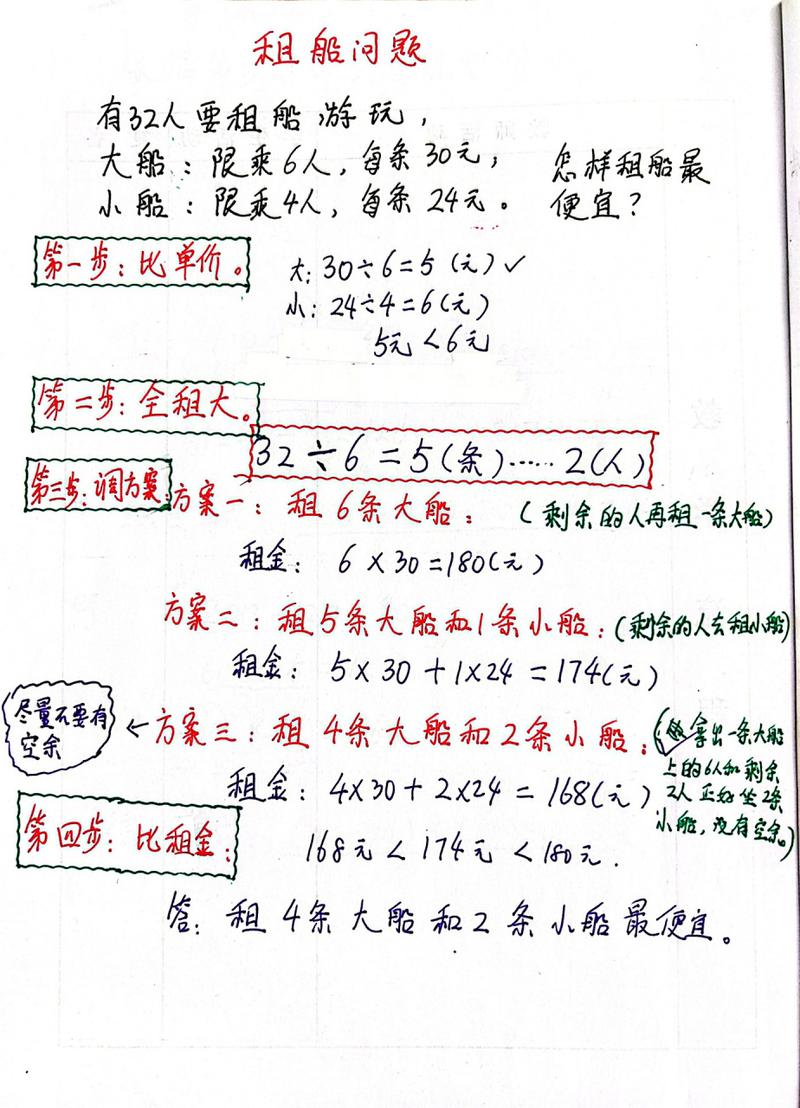 租船问题
有32人要租船游玩，
大船：限乘6人，每条30元；
小船：限乘4人，每条24元。
怎样租船最
便宜？
第一步：比单价。
大：30÷6=5（元）✓
小：24÷4=6（元）
5元<6元
第二步：全租大。
32÷6=5（条）……2（人）
第三步：调方案：
方案一：租6条大船：（剩余的人再租一条大船）
租金：6×30=180（元）
方案二：租5条大船和1条小船：（剩余的人去租小船）
租金：5×30+1×24=174（元）
尽量不要有
空余
←方案三：租4条大船和2条小船：
（拿出一条大船
上的6人和剩余
2人正好坐2条
小船，没有空余。）
租金：4×30+2×24=168（元）
第四步：比租金：
168元<174元<180元.
答：租4条大船和2条小船最便宜。